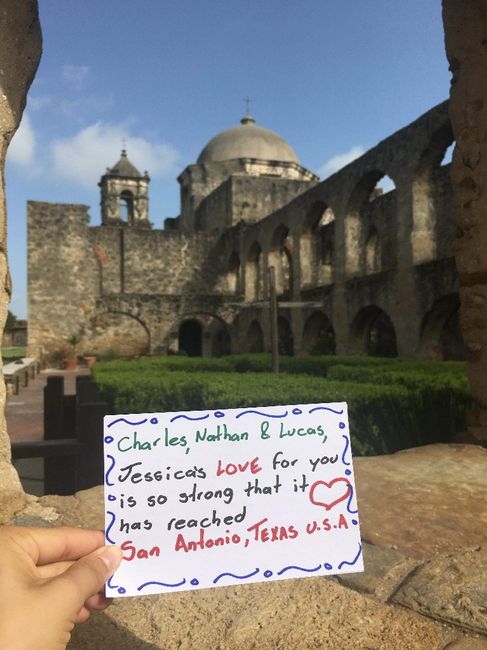 Charles, Nathan & Lucas,
Jessica's LOVE for you
is so strong that it
has reached
San Antonio, TEXAS U.S.A